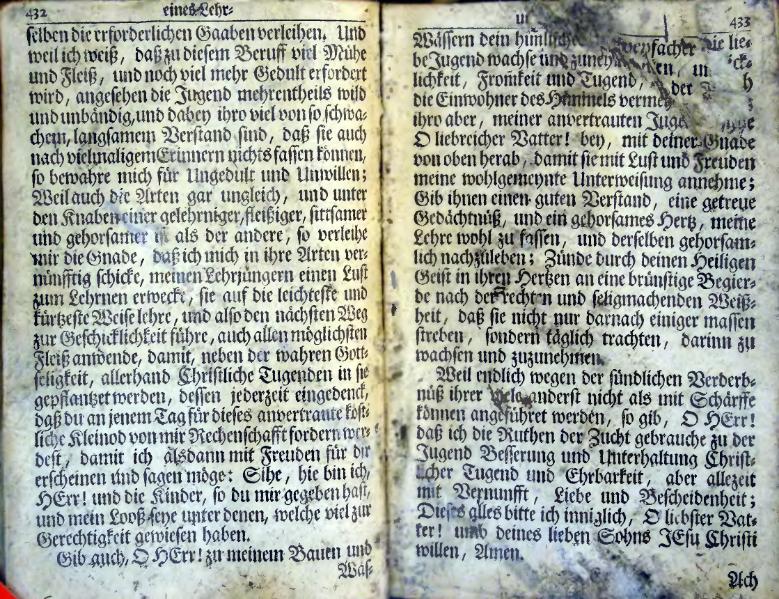 432
eines Lehr-
selben die erforderlichen Gaaben verleihen. Und
weil ich weiß, daß zu diesem Beruff viel Mühe
und Fleiß, und noch viel mehr Gedult erfordert
wird, angesehen die Jugend mehrentheils wild
und unbändig, und dabey ihro viel von so schwa-
chem, langsamem Verstand sind, daß sie auch
nach vielmaligem Erinnern nichts fassen können,
so bewahre mich für Ungedult und Unwillen;
Weil auch die Arten gar ungleich, und unter
den Knaben einer gelehrniger, fleißiger, sittsamer
und gehorsamer ist als der andere, so verleihe
mir die Gnade, daß ich mich in ihre Arten ver-
nünfftig schicke, meinen Lehrjüngern einen Lust
zum Lehrnen erwecke, sie auf die leichteste und
kürtzeste Weise lehre, und also den nächsten Weg
zur Geschicklichkeit führe, auch allen möglichsten
Fleiß anwende, damit, neben der wahren Gott-
seligkeit, allerhand Christliche Tugenden in sie
gepflantzet werden, dessen jederzeit eingedenck,
daß du an jenem Tag für dieses anvertraute köst-
liche Kleinod von mir Rechenschafft fordern wer-
dest, damit ich alsdann mit Freuden für dir
erscheinen und sagen möge: Sihe, hie bin ich,
HErr! und die Kinder, so du mir gegeben hast,
und mein Looß seye unter denen, welche viel zur
Gerechtigkeit gewiesen haben.
Gib auch, O HErr! zu meinem Bauen und
Wäs-
433
Wässern dein himlische die lie-
be Jugend wachse und
lichkeit, Fromkeit und Tugend, der
die Einwohner des Himmels
ihro aber, meiner anvertrauten
O liebreicher Vatter! bey, mit deiner Gnade
von oben herab, damit sie mit Lust und Freuden
meine wohlgemeynte Unterweisung annehme;
Gib ihnen einen guten Verstand, eine getreue
Gedächtnüß, und ein gehorsames Hertz, meine
Lehre wohl zu fassen, und derselben gehorsam-
lich nachzuleben; Zünde durch deinen Heiligen
Geist in ihren Hertzen an eine brünstige Begier-
de nach der rechten und seligmachenden Weiß-
heit, daß sie nicht nur darnach einiger massen
streben, sondern täglich trachten, darinn zu
wachsen und zuzunehmen.
Weil endlich wegen der sündlichen Verderb-
nüß ihrer anderst nicht als mit Schärffe
können angeführet werden, so gib, O HErr!
daß ich die Ruthen der Zucht gebrauche zu der
Jugend Besserung und Unterhaltung Christ-
licher Tugend und Ehrbarkeit, aber allezeit
mit Vernunfft, Liebe und Bescheidenheit;
Dieses alles bitte ich inniglich, O liebster Vat-
ter! umb deines lieben Sohns JEsu Christi
willen, Amen.
Ach